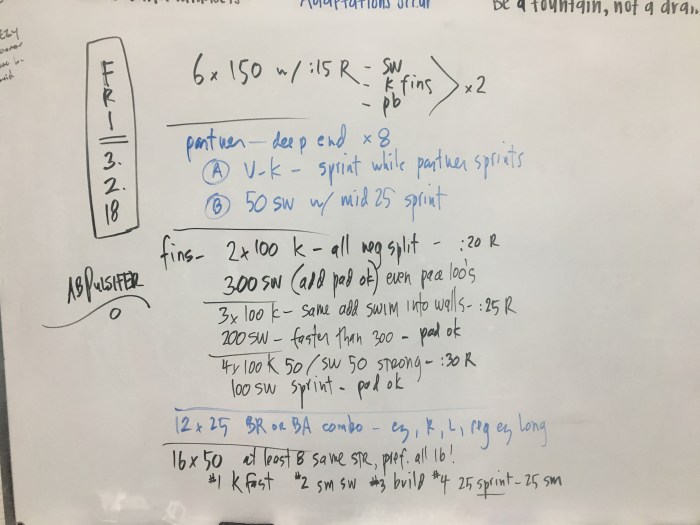 Adaptations occur
Be a fountain, not a drain.
FRI
3.
2.
18
6 x 150 w/ :15 R - SW
- K fins
- pb
x2
partner - deep end x 8
A V-K - sprint while partner sprints
B 50 SW w/ mid 25 sprint
fins - 2x100 K - all neg split - :20 R
300 SW (add pad ok) even pace 100's
3 x 100 K - same add swim into walls - :25 R
200 SW - faster than 300 - pad ok
4x100 K 50 / SW 50 strong - :30 R
100 SW sprint - pad ok
ABPULSIFER
12 x 25 BR or BA combo - ez, R, L, reg ez Long
16 x 50 at least 8 same STR, pref. all 16!
#1 K fast #2 sm sw #3 build #4 25 sprint - 25 sm